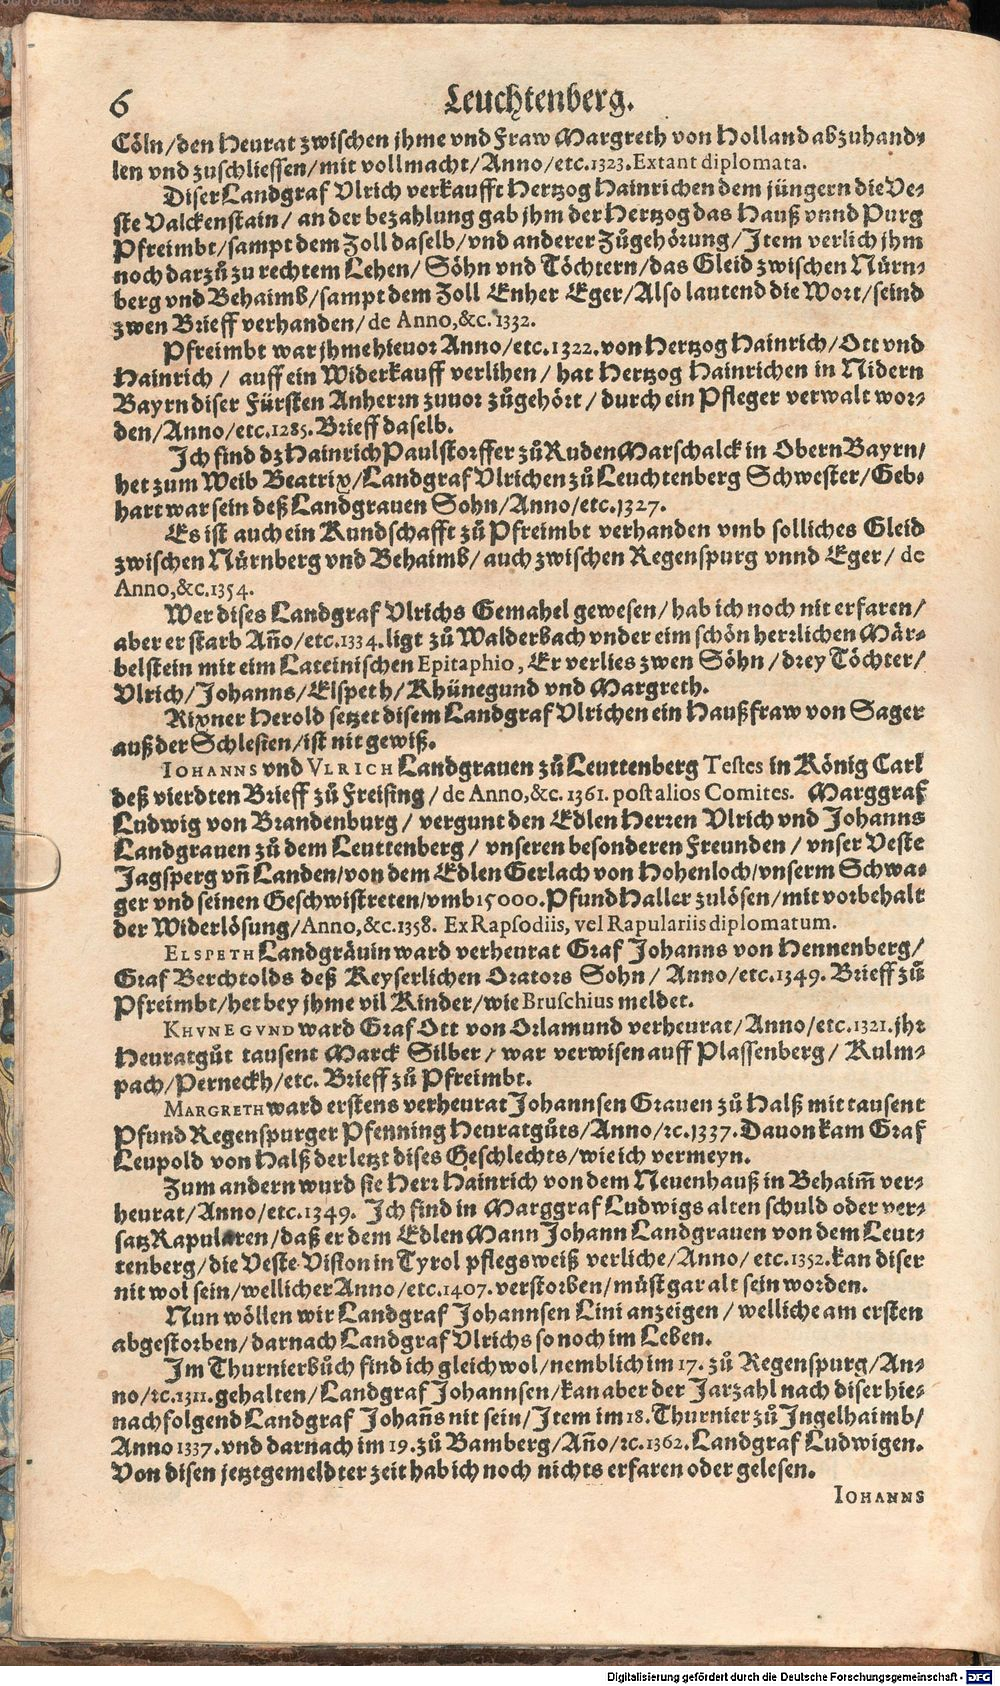 6 Leuchtenberg.
Cöln/den Heurat zwischen jhme vnd Fraw Margreth von Holland abzuhand-
len vnd zuschliessen/mit vollmacht/Anno/etc.1323.Extant diplomata.
Diser Landgraf Vlrich verkaufft Hertzog Hainrichen dem jüngern die Ve-
ste Valckenstain/ an der bezahlung gab jhm der Hertzog das Hauß vnnd Purg
Pfreimbt/sampt dem Zoll daselb/vnd anderer Zůgehörung/Item verlich jhm
noch darzů zu rechtem Lehen/ Söhn vnd Töchtern/das Gleid zwischen Nürn-
berg vnd Behaimb/sampt dem Zoll Enher Eger/Also lautend die Wort/seind
zwen Brieff verhanden/ de Anno,&c.1332.
Pfreimbt war jhme hieuor Anno/etc.1322.von Hertzog Hainrich/Ott vnd
Hainrich / auff ein Widerkauff verlihen/ hat Hertzog Hainrichen in Nidern
Bayrn diser Fürsten Anherrn zuuor zůgehört/durch ein Pfleger verwalt wor-
den/Anno/etc.1285.Brieff daselb.
Ich find dz Hainrich Paulstorffer zů Ruden Marschalck in Obern Bayrn/
het zum Weib Beatrix/Landgraf Vlrichen zů Leuchtenberg Schwester/Geb-
hart war sein deß Landgrauen Sohn/Anno/etc.1327.
Es ist auch ein Kundschafft zů Pfreimbt verhanden vmb solliches Gleid
zwischen Nürnberg vnd Behaimb/ auch zwischen Regenspurg vnnd Eger/ de
Anno,&c.1354.
Wer dises Landgraf Vlrichs Gemahel gewesen/hab ich noch nit erfaren/
aber er starb Año/etc.1334.ligt zů Walderbach vnder eim schön herrlichen Mär-
belstein mit eim Lateinischen Epitaphio, Er verlies zwen Söhn/drey Töchter/
Vlrich/Johanns/Elspeth/Khünegund vnd Margreth.
Rixner Herold setzet disem Landgraf Vlrichen ein Haußfraw von Sager
auß der Schlesien/ist nit gewiß.
IOHANNS vnd VLRICH Landgrauen zů Leuttenberg Testes in König Carl
deß vierdten Brieff zů Freising/ de Anno,&c. 1361. post alios Comites. Marggraf
Ludwig von Brandenburg/ vergunt den Edlen Herren Vlrich vnd Johanns
Landgrauen zů dem Leuttenberg/ vnseren besonderen Freunden/ vnser Veste
Jagsperg vñ Landen/von dem Edlen Gerlach von Hohenloch/vnserm Schwa-
ger vnd seinen Geschwistreten/vmb 15000.Pfund Haller zulösen/mit vorbehalt
der Widerlösung/Anno,&c.1358. Ex Rapsodiis, vel Rapulariis diplomatum.
ELSPETH Landgräuin ward verheurat Graf Johanns von Hennenberg/
Graf Berchtolds deß Keyserlichen Orators Sohn/ Anno/etc.1349. Brieff zů
Pfreimbt/het bey jhme vil Kinder/wie Bruschius meldet.
KHVNEGVND ward Graf Ott von Orlamund verheurat/Anno/etc.1321.jhr
Heuratgůt tausent Marck Silber/ war verwisen auff Plassenberg/ Kulm-
pach/Perneckh/etc. Brieff zů Pfreimbt.
MARGRETH ward erstens verheurat Johannsen Grauen zů Halß mit tausent
Pfund Regenspurger Pfenning Heuratgůts/Anno/ꝛc.1337.Dauon kam Graf
Leupold von Halß der letzt dises Geschlechts/wie ich vermeyn.
Zum andern wurd sie Herr Hainrich von dem Neuenhauß in Behaim̄ ver-
heurat/Anno/etc.1349. Ich find in Marggraf Ludwigs alten schuld oder ver-
satz Rapularen/daß er dem Edlen Mann Johann Landgrauen von dem Leut-
tenberg/die Veste Vision in Tyrol pflegsweiß verliche/Anno/ etc.1352.kan diser
nit wol sein/wellicher Anno/etc.1407.verstorben/müst gar alt sein worden.
Nun wöllen wir Landgraf Johannsen Lini anzeigen/wellicheam ersten
abgestorben/darnach Landgraf Vlrichs so noch im Leben.
Im Thurnierbůch find ich gleichwol/nemblich im 17. zů Regenspurg/An-
no/ꝛc.1311.gehalten/Landgraf Johannsen/kan aber der Jarzahl nach diser hie-
nachfolgend Landgraf Johañs nit sein/Item im 18.Thurnier zů Ingelhaimb/
Anno 1337.vnd darnach im 19.zů Bamberg/Año/ꝛc.1362.Landgraf Ludwigen.
Von disen jetztgemeldter zeit hab ich noch nichts erfaren oder gelesen.
IOHANNS
Digitalisierung gefördert durch die Deutsche Forschungsgemeinschaft - DFG